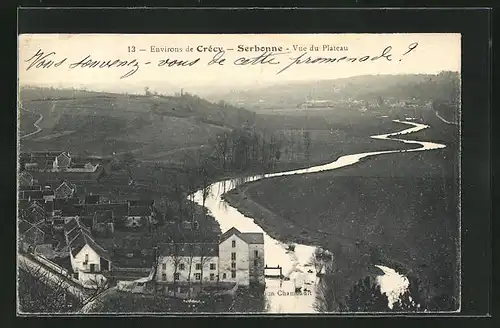 13 — Environs de Crécy — Serbonne - Vue du Plateau
Vous souvenez-vous de cette promenade ?